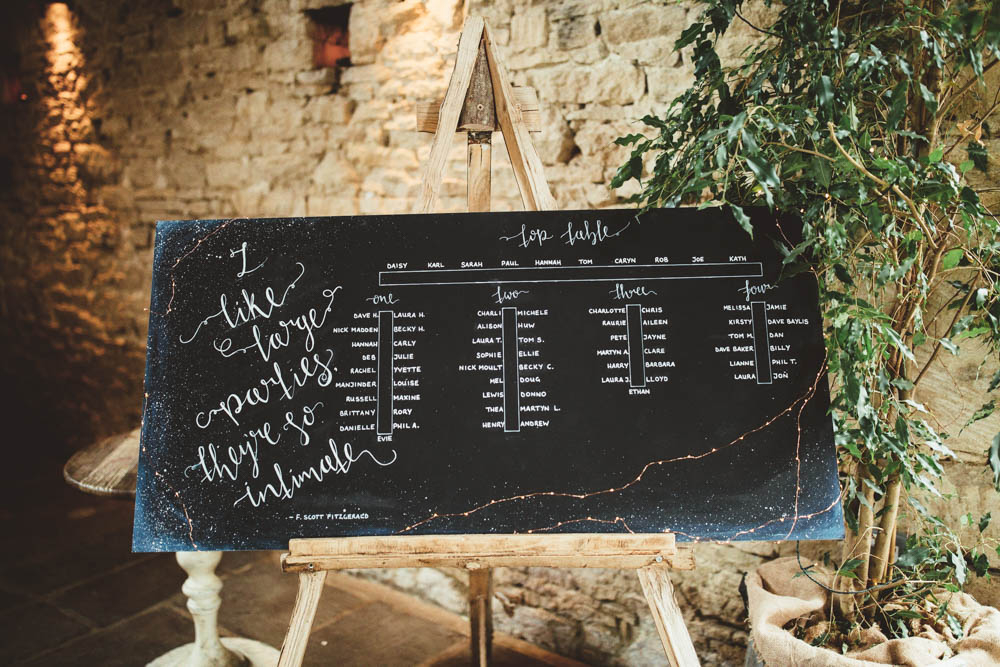 I
like
large
parties,
they're so
intimate
- F. SCOTT FITZGERALD
top table
DAISY KARL SARAH PAUL HANNAH TOM CARYN ROB JOE KATH
one
DAVE H. LAURA H.
NICK MADDEN BECKY H.
HANNAH CARLY
DEB JULIE
RACHEL YVETTE
MANJINDER LOUISE
RUSSELL MAXINE
BRITTANY RORY
DANIELLE PHIL A.
EVIE
two
CHARLI MICHELE
ALISON HUW
LAURA T. TOM S.
SOPHIE ELLIE
NICK MOULT BECKY C.
MEL DOUG
LEWIS DONNO
THEA MARTYN L.
HENRY ANDREW
three
CHARLOTTE CHRIS
RAURIE AILEEN
PETE JAYNE
MARTYN A. CLARE
HARRY BARBARA
LAURA J. LLOYD
ETHAN
four
MELISSA JAMIE
KIRSTY DAVE BAYLIS
TOM M. DAN
DAVE BAKER BILLY
LIANNE PHIL T.
LAURA JON